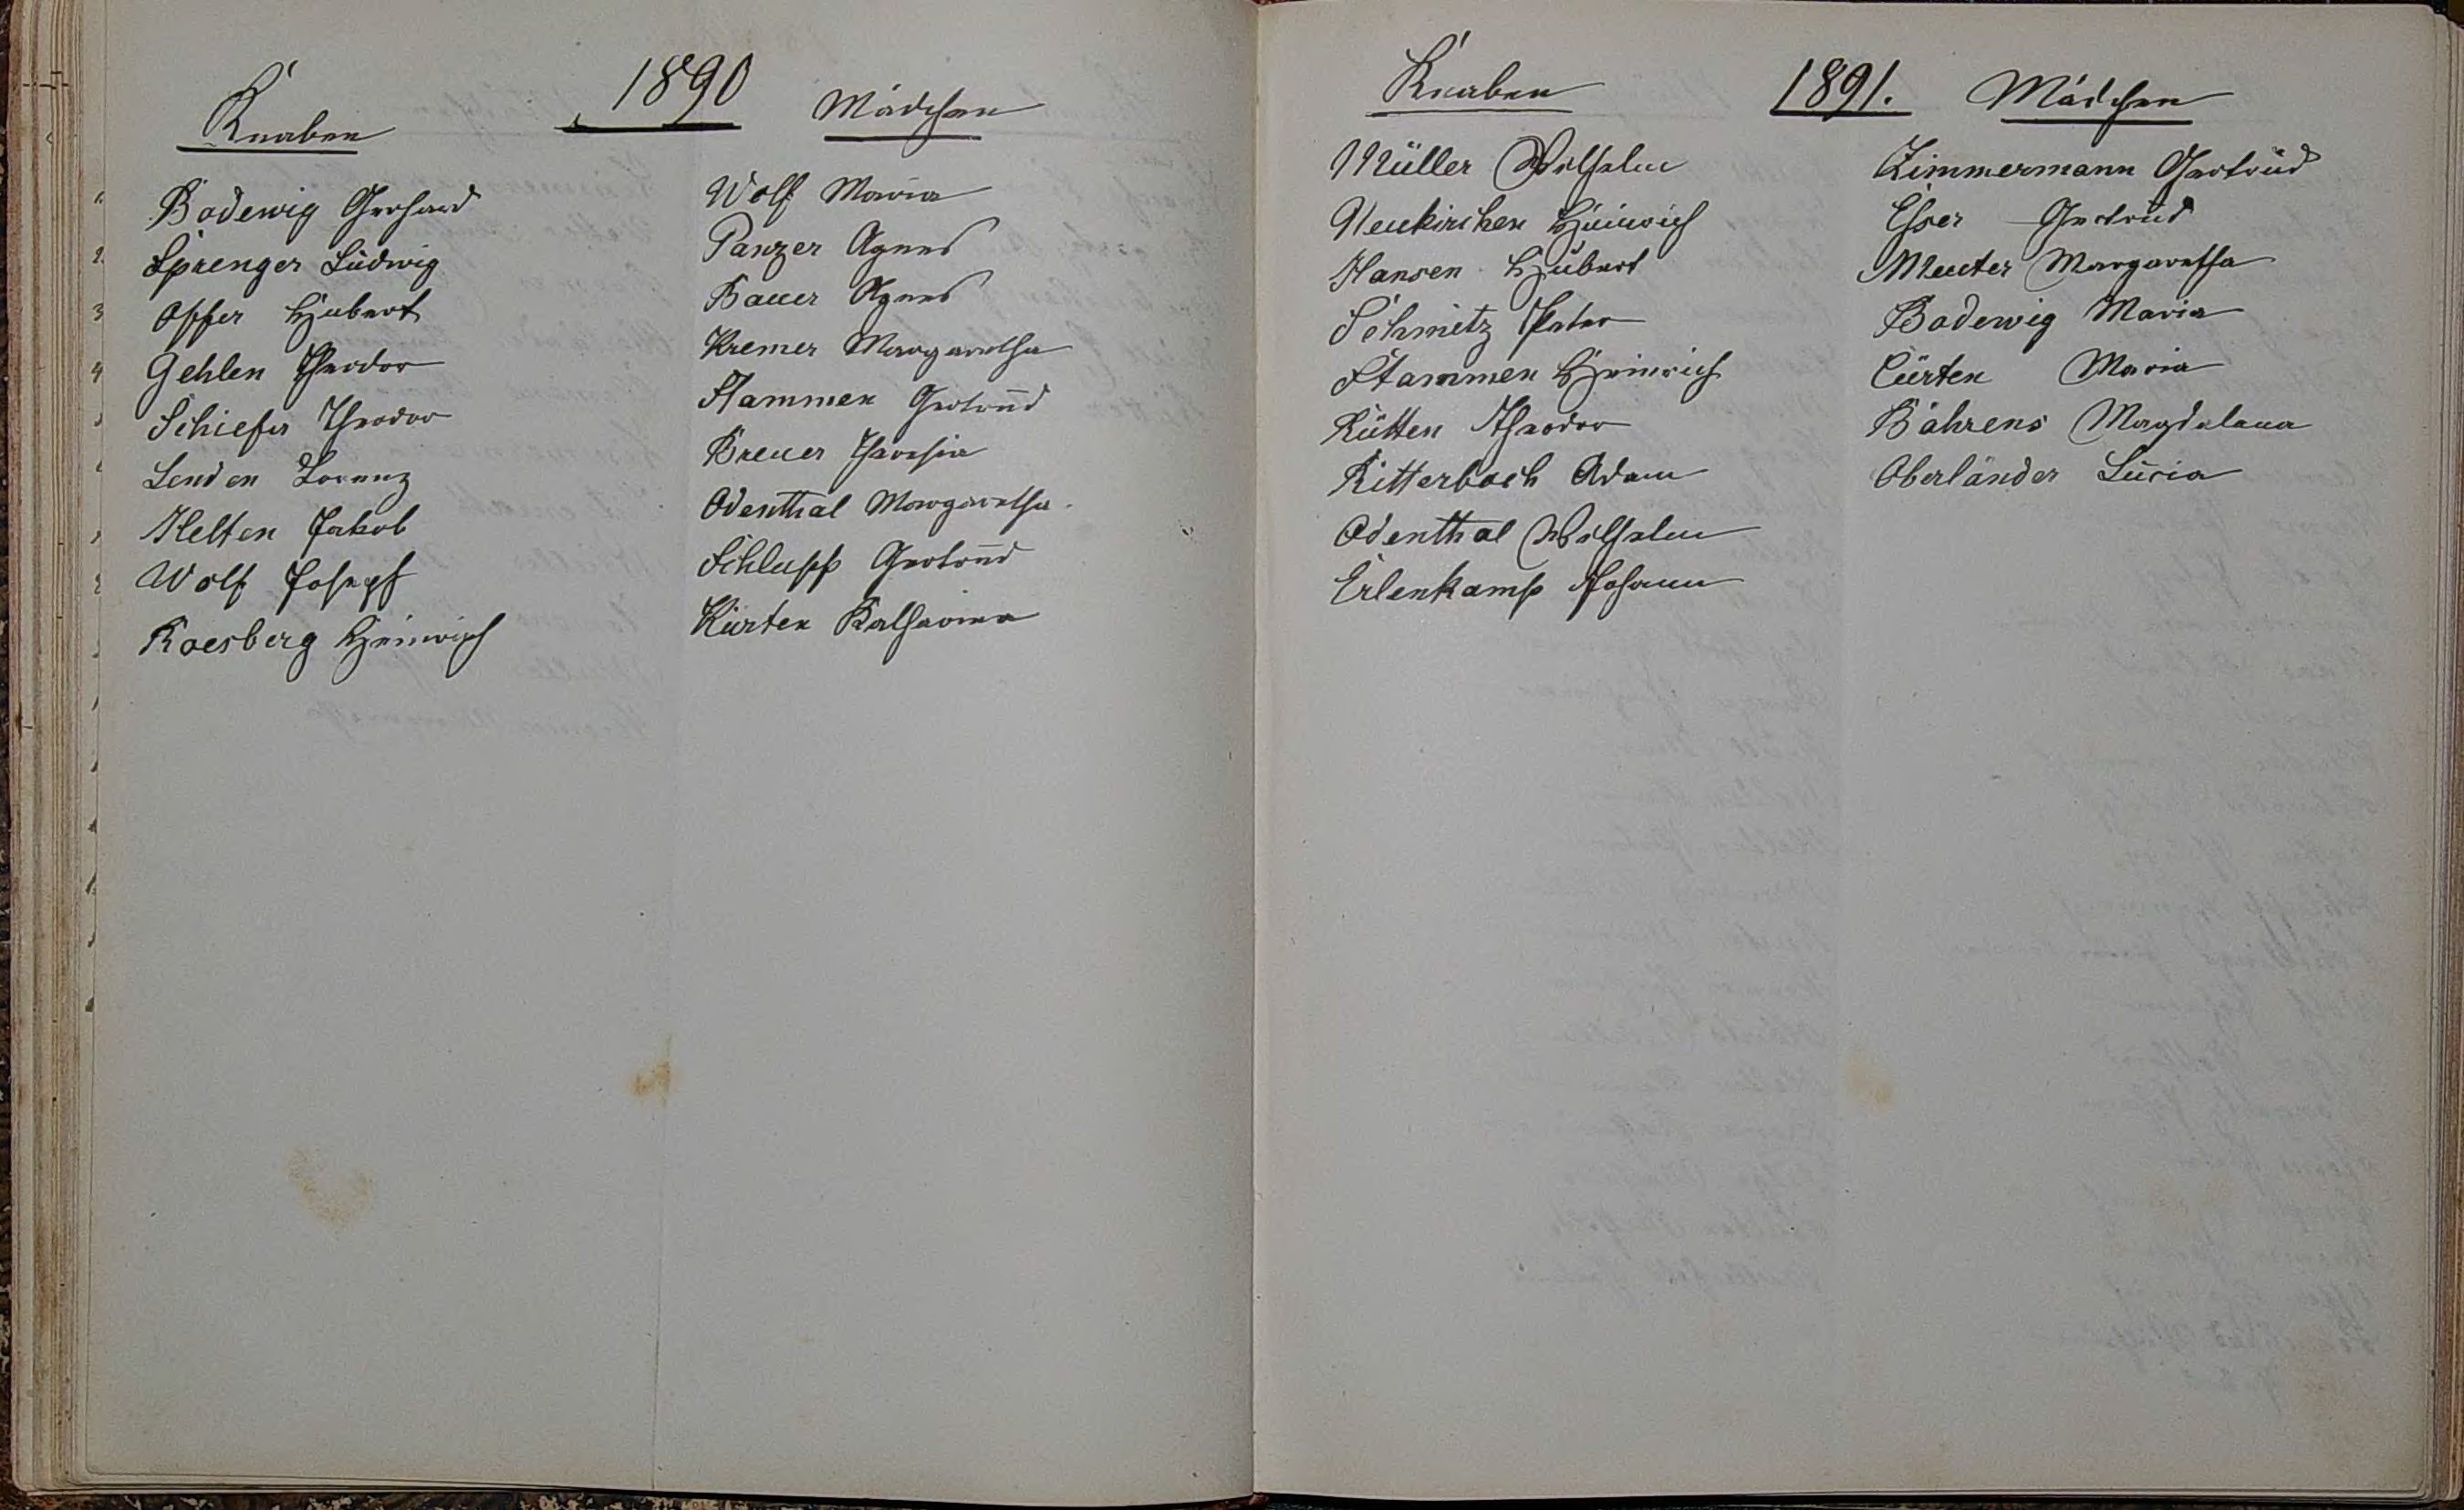 1890
Knaben
Mädchen
Bodewig Gerhard
Sprenger Ludwig
Opfer Hubert
Gehlen Theodor
Schiefer Theodor
Lenden Lorenz
Helten Jakob
Wolf Joseph
Roesberg Heinrich
Wolf Maria
Panzer Agnes
Bauer Agnes
Kremer Margaretha
Stammen Gertrud
Breuer Theresia
Odenthal Margaretha
Schlupp Gertrud
Kürten Katharina
Knaben
1891.
Mädchen
Müller Wilhelm
Neukirchen Heinrich
Hansen Hubert
Schmitz Peter
Stammen Heinrich
Rütten Theodor
Ritterbach Adam
Odenthal Wilhelm
Erlenkamp Johann
Zimmermann Gertrud
Esser Gertrud
Meuter Margaretha
Bodewig Maria
Cürten Maria
Bährens Magdalena
Oberländer Lucia